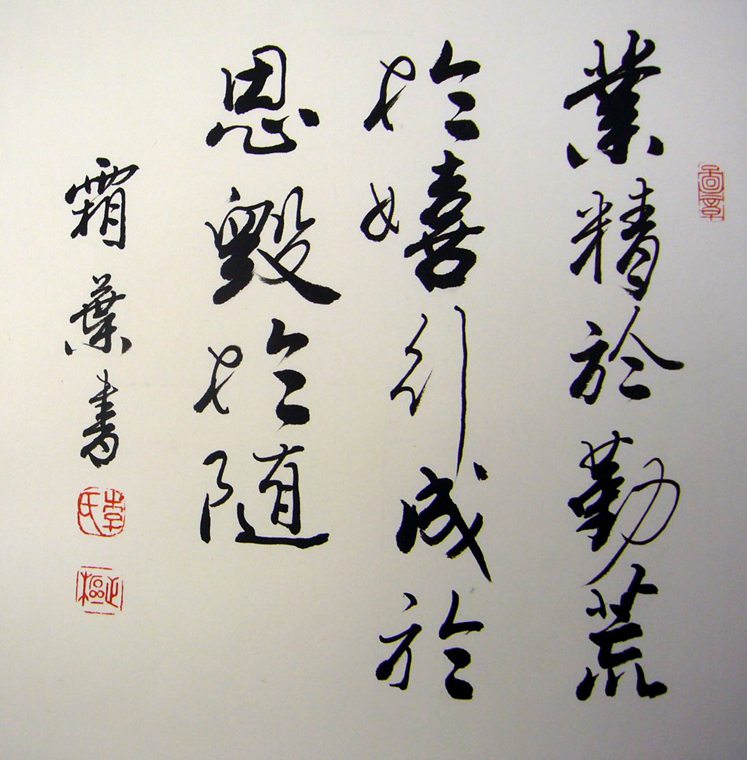 業精於勤荒
於嬉行成於
恩毀於隨
霜葉書
李氏